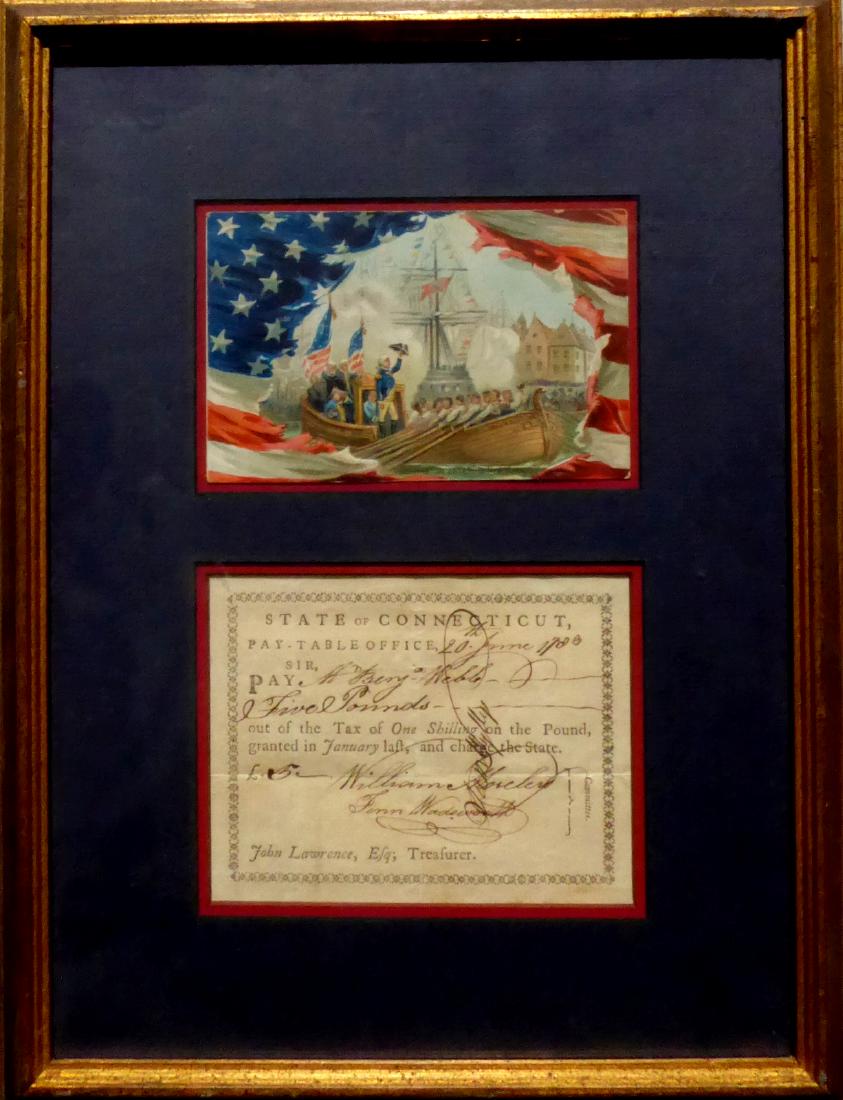 STATE OF CONNECTICUT,
PAY-TABLE OFFICE, 20th June 1783
SIR,
PAY Mr Benja Webb
Five Pounds
out of the Tax of One Shilling on the Pound,
granted in January last, and charge the State.
£ 5
William Moseley
Fenn Wadsworth
Committee.
John Lawrence, Esq; Treasurer.